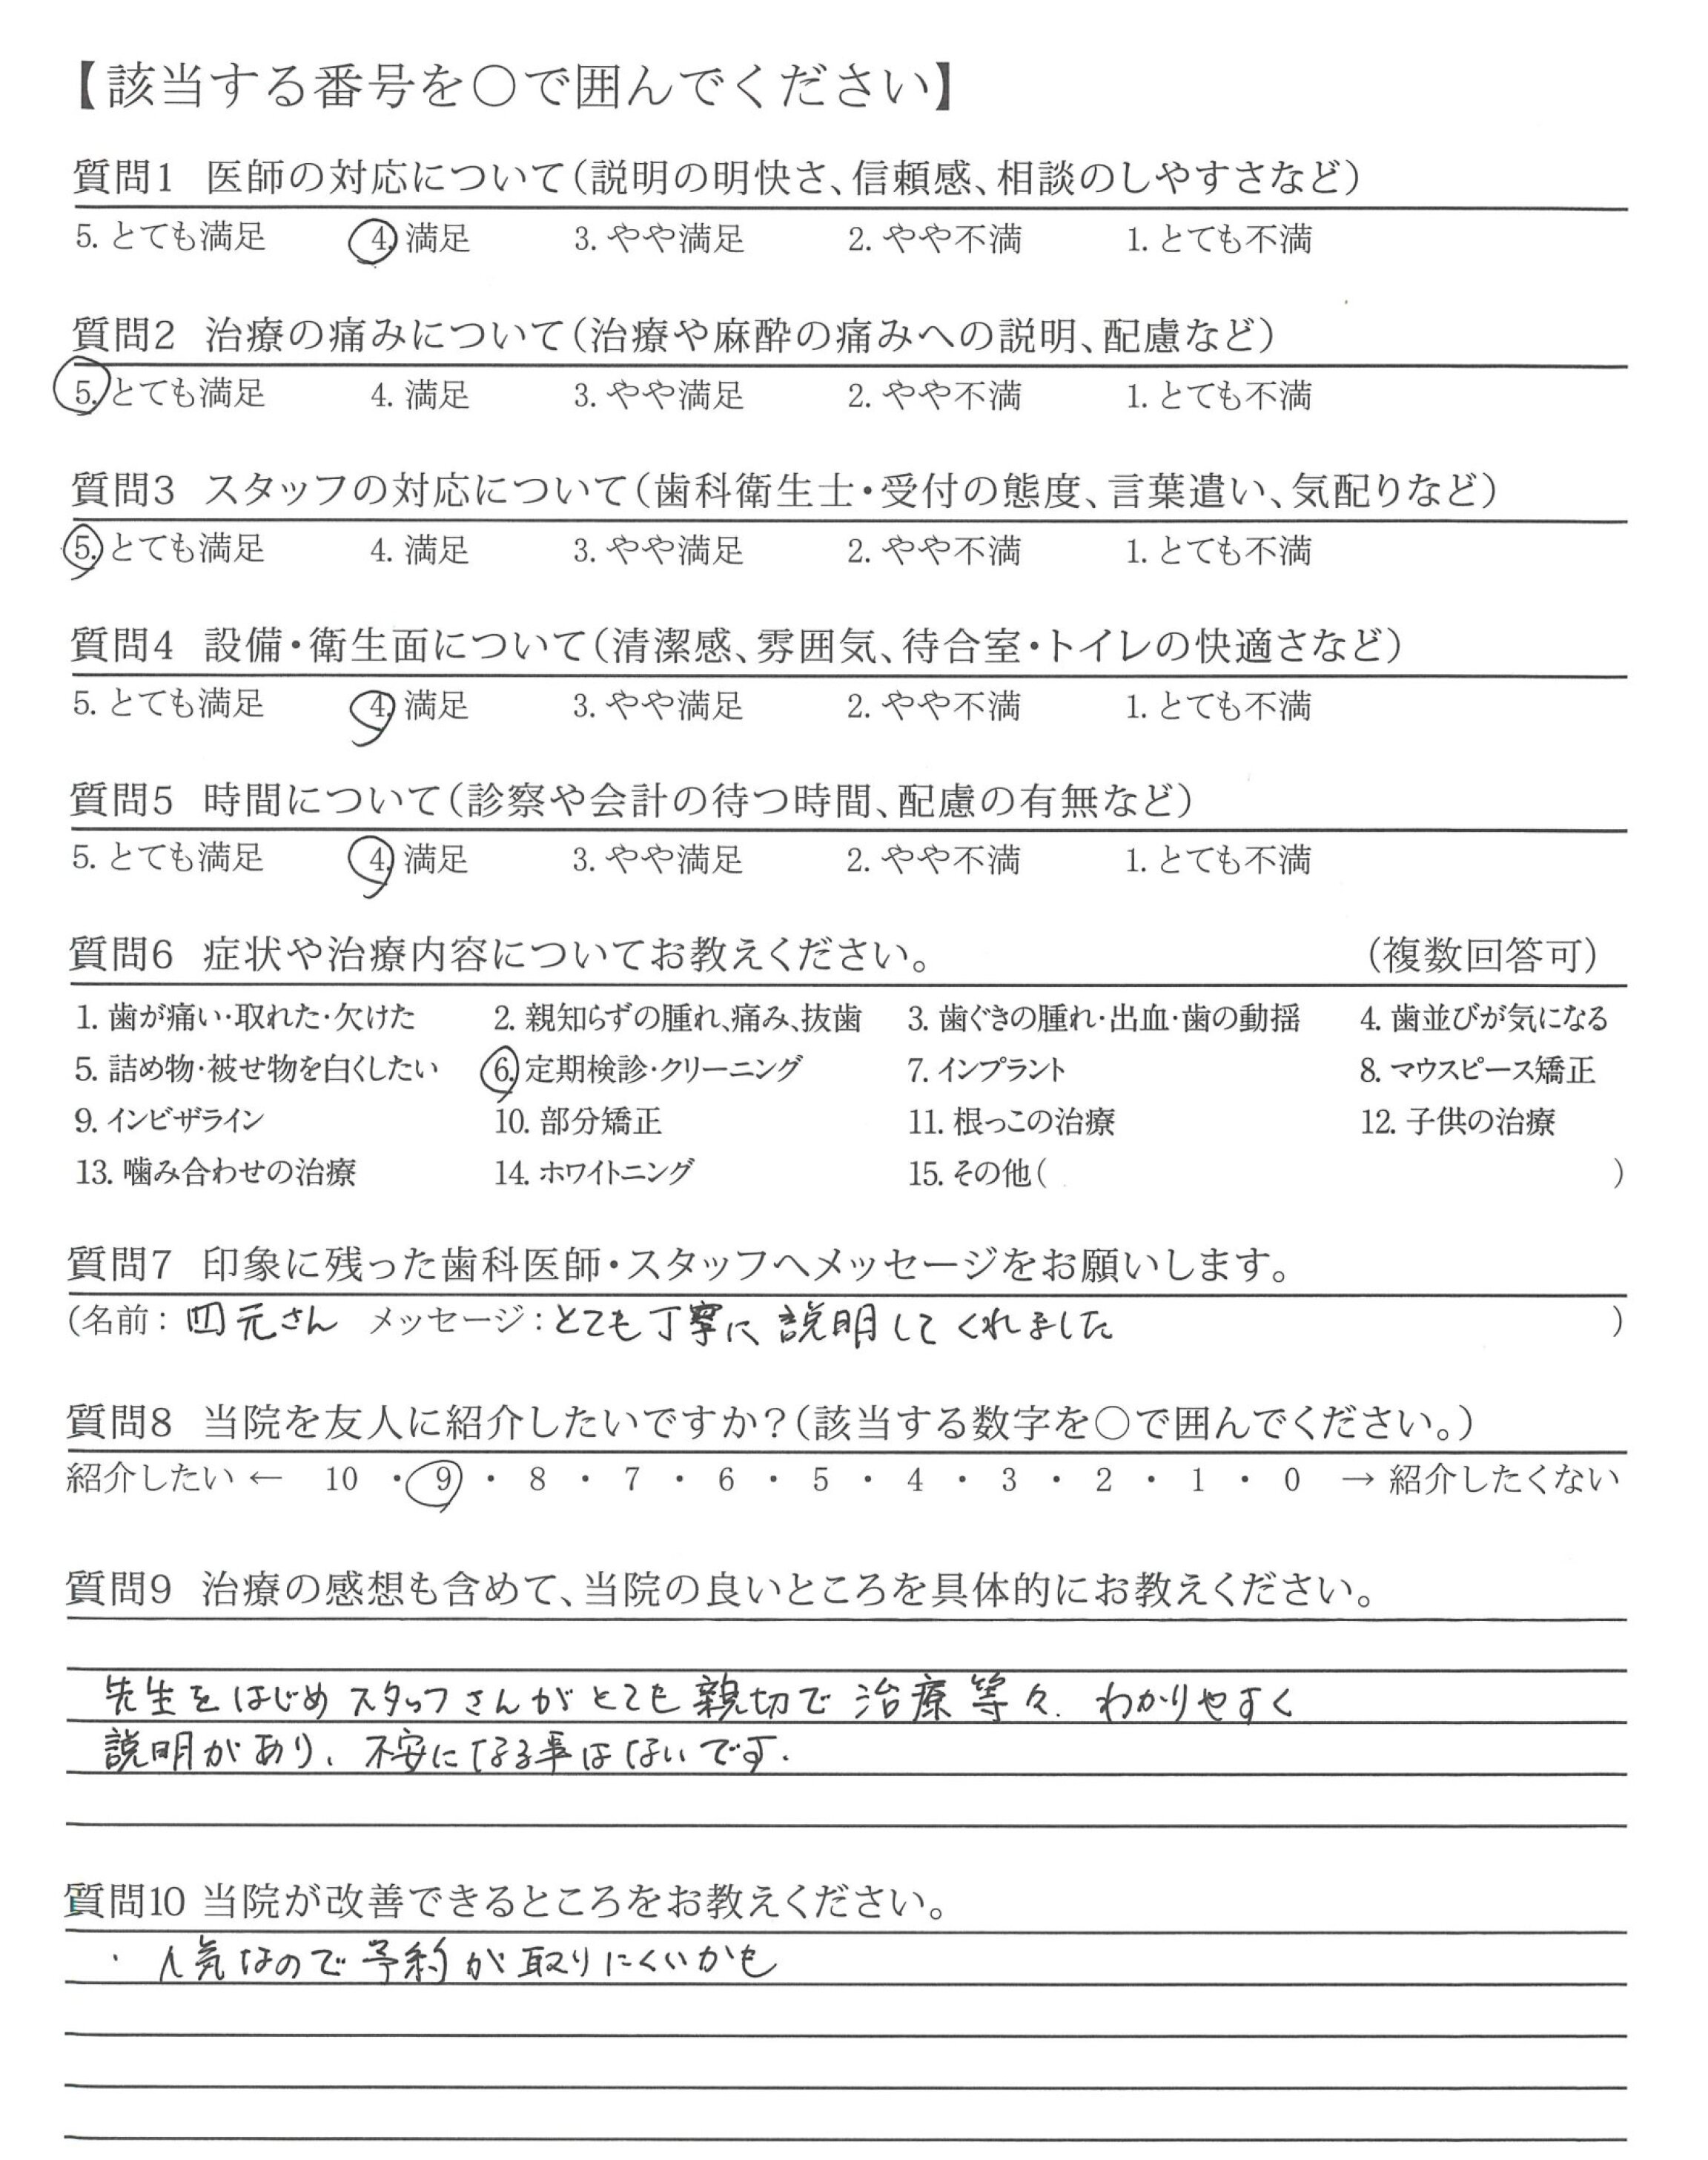 【該当する番号を○で囲んでください】
質問1 医師の対応について（説明の明快さ、信頼感、相談のしやすさなど）
5. とても満足 4. 満足 3. やや満足 2. やや不満 1. とても不満
質問2 治療の痛みについて（治療や麻酔の痛みへの説明、配慮など）
5. とても満足 4. 満足 3. やや満足 2. やや不満 1. とても不満
質問3 スタッフの対応について（歯科衛生士・受付の態度、言葉遣い、気配りなど）
5. とても満足 4. 満足 3. やや満足 2. やや不満 1. とても不満
質問4 設備・衛生面について（清潔感、雰囲気、待合室・トイレの快適さなど）
5. とても満足 4. 満足 3. やや満足 2. やや不満 1. とても不満
質問5 時間について（診察や会計の待つ時間、配慮の有無など）
5. とても満足 4. 満足 3. やや満足 2. やや不満 1. とても不満
質問6 症状や治療内容についてお教えください。 （複数回答可）
1. 歯が痛い・取れた・欠けた 2. 親知らずの腫れ、痛み、抜歯 3. 歯ぐきの腫れ・出血・歯の動揺 4. 歯並びが気になる
5. 詰め物・被せ物を白くしたい 6. 定期検診・クリーニング 7. インプラント 8. マウスピース矯正
9. インビザライン 10. 部分矯正 11. 根っこの治療 12. 子供の治療
13. 噛み合わせの治療 14. ホワイトニング 15. その他（ ）
質問7 印象に残った歯科医師・スタッフへメッセージをお願いします。
（名前：四元さん メッセージ：とても丁寧に説明してくれました ）
質問8 当院を友人に紹介したいですか？（該当する数字を○で囲んでください。）
紹介したい ← 10 ・ 9 ・ 8 ・ 7 ・ 6 ・ 5 ・ 4 ・ 3 ・ 2 ・ 1 ・ 0 → 紹介したくない
質問9 治療の感想も含めて、当院の良いところを具体的にお教えください。
先生をはじめスタッフさんがとても親切で治療等々、わかりやすく
説明があり、不安になる事はないです。
質問10 当院が改善できるところをお教えください。
・人気なので予約が取りにくいかも